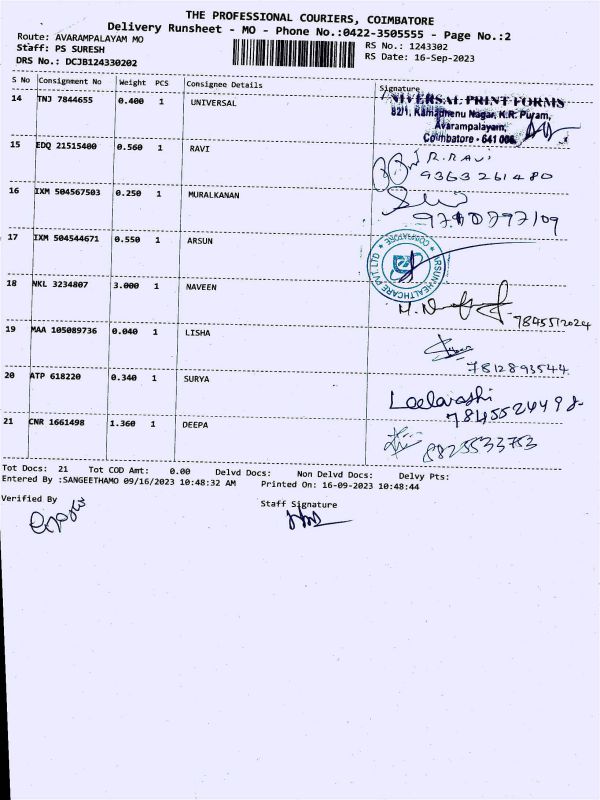 THE PROFESSIONAL COURIERS, COIMBATORE
Delivery Runsheet - MO - Phone No.:0422-3505555 - Page No.:2
Route: AVARAMPALAYAM MO
RS No.: 1243302
Staff: PS SURESH
RS Date: 16-Sep-2023
DRS No.: DCJB124330202
S No Consignment No Weight PCS Consignee Details Signature
14 TNJ 7844655 0.400 1 UNIVERSAL
UNIVERSAL PRINT FORMS
82/1, Kamadhenu Nagar, K.R. Puram,
Avarampalayam,
Coimbatore - 641 006.
15 EDQ 21515400 0.560 1 RAVI
R.RAVI
9363261480
16 IXM 504567503 0.250 1 MURALKANAN
17 IXM 504544671 0.550 1 ARSUN
ARSUN HEALTHCARE PVT LTD
COIMBATORE
18 NKL 3234807 3.000 1 NAVEEN
7845512024
19 MAA 105089736 0.040 1 LISHA
7812893544
20 ATP 618220 0.340 1 SURYA
Leelavathi
21 CNR 1661498 1.360 1 DEEPA
8825533753
Tot Docs: 21 Tot COD Amt: 0.00 Delvd Docs: Non Delvd Docs: Delvy Pts:
Entered By :SANGEETHAMO 09/16/2023 10:48:32 AM Printed On: 16-09-2023 10:48:44
Verified By
Staff Signature